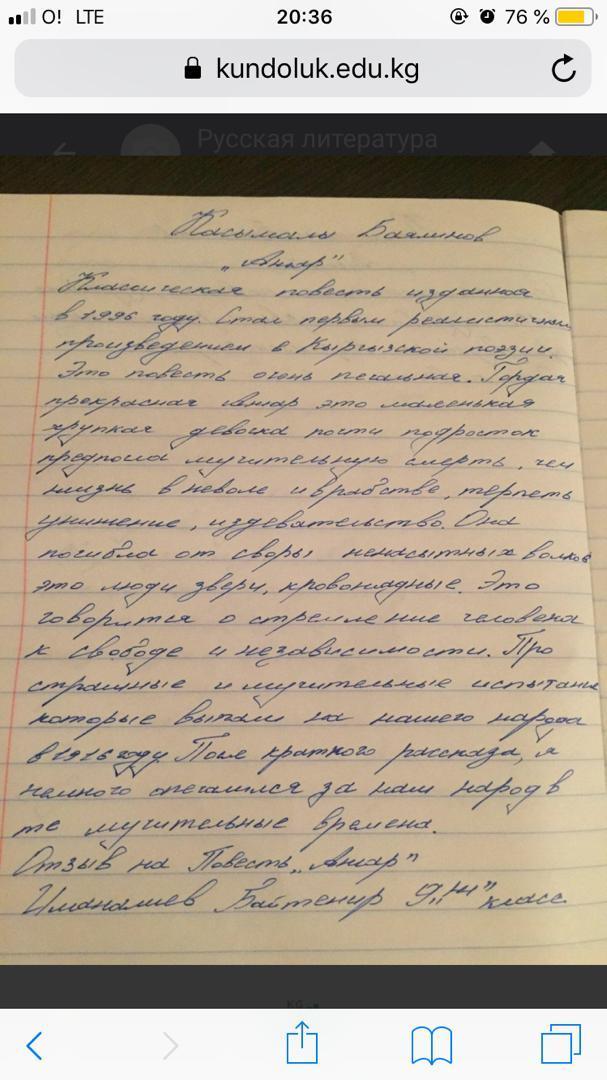 O! LTE 20:36 76 %
kundoluk.edu.kg
Русская литература
Касымалы Баялинов
„Ажар"
Классическая повесть изданная
в 1996 году. Стал первым реалистичным
произведением в Кыргызской поэзии.
Это повесть очень печальная. Гордая
прекрасная Ажар это маленькая
хрупкая девочка почти подросток
предпочла мучительную смерть, чем
жизнь в неволе и в рабстве, терпеть
унижение, издевательство. Она
погибла от своры ненасытных волков
это люди звери, кровожадные. Это
говорится о стремление человека
к свободе и независимости. Про
страшные и мучительные испытания
которые выпали на нашего народа
в 1916 году. После краткого рассказа, я
немного опечалился за наш народ в
те мучительные времена.
Отзыв на Повесть „Ажар"
Иманалиев Байтемир 9 „Ж" класс.
KG